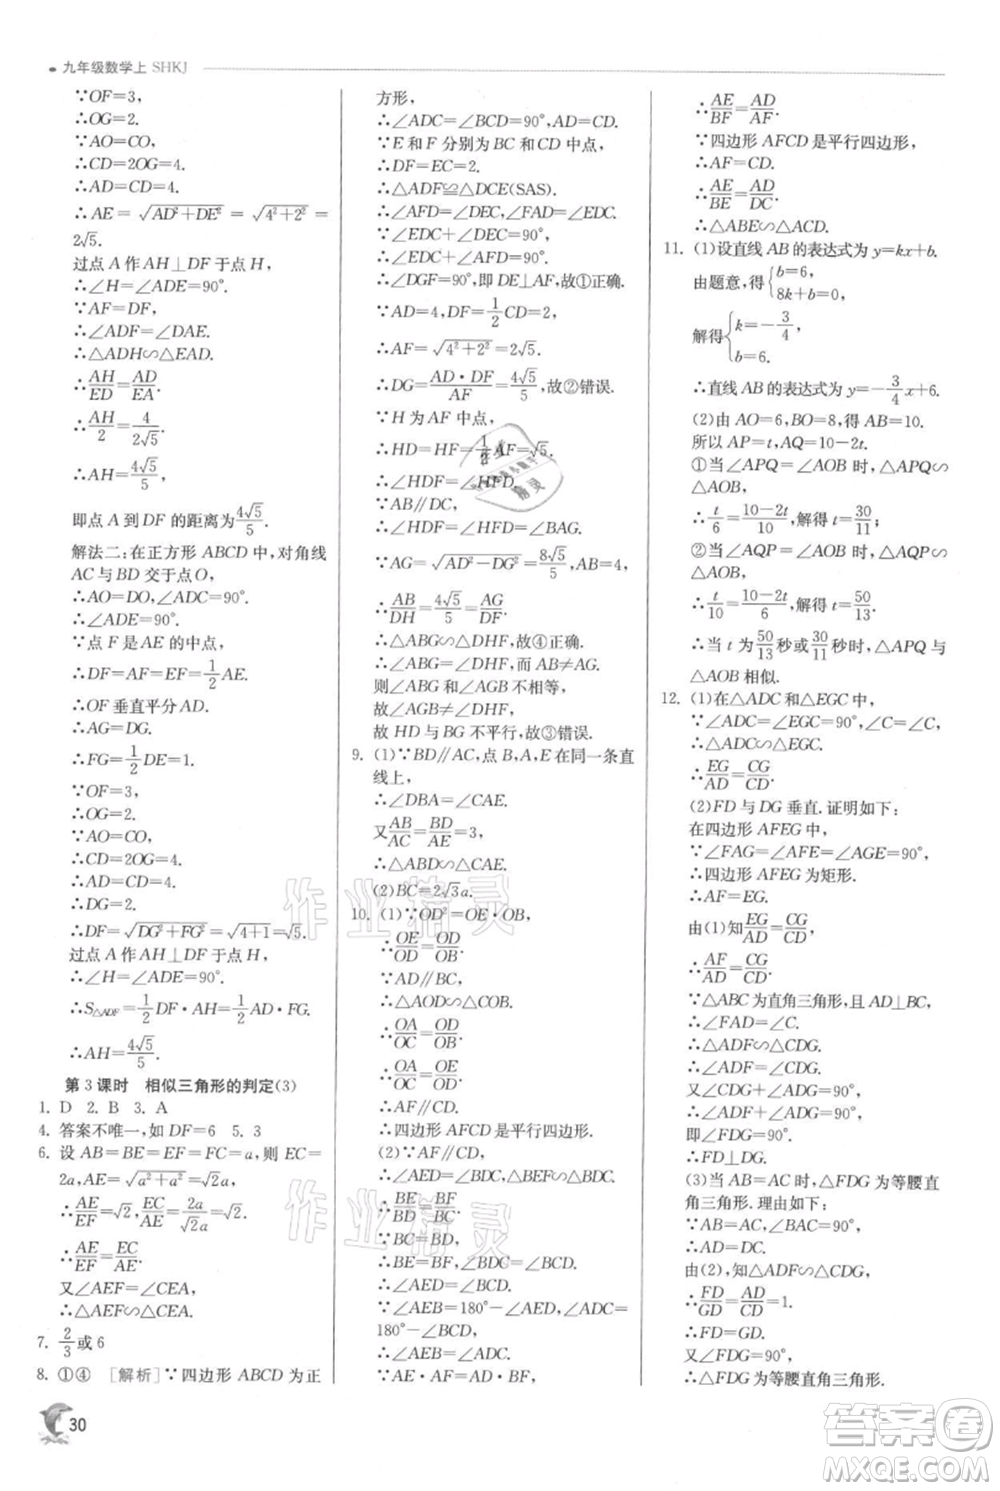 九年级数学上 SHKJ
∵OF=3,
∴OG=2.
∵AO=CO,
∴CD=2OG=4.
∴AD=CD=4.
∴AE=√(AD²+DE²)=√(4²+2²)=
2√5.
过点 A 作 AH⊥DF 于点 H,
∴∠H=∠ADE=90°.
∵AF=DF,
∴∠ADF=∠DAE.
∴△ADH∽△EAD.
∴AH/ED=AD/EA.
∴AH/2=4/(2√5).
∴AH=4√5/5,
即点 A 到 DF 的距离为4√5/5.
解法二:在正方形 ABCD 中,对角线
AC 与 BD 交于点 O,
∴AO=DO,∠ADC=90°.
∴∠ADE=90°.
∵点 F 是 AE 的中点,
∴DF=AF=EF=1/2AE.
∴OF 垂直平分 AD.
∴AG=DG.
∴FG=1/2DE=1.
∵OF=3,
∴OG=2.
∵AO=CO,
∴CD=2OG=4.
∴AD=CD=4.
∴DG=2.
∴DF=√(DG²+FG²)=√(4+1)=√5.
过点 A 作 AH⊥DF 于点 H,
∴∠H=∠ADE=90°.
∴S△ADF=1/2DF·AH=1/2AD·FG.
∴AH=4√5/5.
第 3 课时 相似三角形的判定(3)
1. D 2. B 3. A
4. 答案不唯一,如 DF=6 5. 3
6. 设 AB=BE=EF=FC=a,则 EC=
2a,AE=√(a²+a²)=√2a.
∴AE/EF=√2,EC/AE=2a/(√2a)=√2.
∴AE/EF=EC/AE.
又∠AEF=∠CEA,
∴△AEF∽△CEA.
7. 2/3或 6
8. ①④ [解析]∵四边形 ABCD 为正
方形,
∴∠ADC=∠BCD=90°,AD=CD.
∵E 和 F 分别为 BC 和 CD 中点,
∴DF=EC=2.
∴△ADF≌△DCE(SAS).
∴∠AFD=∠DEC,∠FAD=∠EDC.
∵∠EDC+∠DEC=90°,
∴∠EDC+∠AFD=90°.
∴∠DGF=90°,即 DE⊥AF,故①正确.
∵AD=4,DF=1/2CD=2,
∴AF=√(4²+2²)=2√5.
∴DG=AD·DF/AF=4√5/5,故②错误.
∵H 为 AF 中点,
∴HD=HF=1/2AF=√5.
∴∠HDF=∠HFD.
∵AB∥DC,
∴∠HDF=∠HFD=∠BAG.
∵AG=√(AD²−DG²)=8√5/5,AB=4,
∴AB/DH=4√5/5=AG/DF.
∴△ABG∽△DHF,故④正确.
∴∠ABG=∠DHF,而 AB≠AG.
则∠ABG 和∠AGB 不相等,
故∠AGB≠∠DHF,
故 HD 与 BG 不平行,故③错误.
9. (1)∵BD∥AC,点 B,A,E 在同一条直
线上,
∴∠DBA=∠CAE.
又AB/AC=BD/AE=3,
∴△ABD∽△CAE.
(2)BC=2√3a.
10. (1)∵OD²=OE·OB,
∴OE/OD=OD/OB.
∵AD∥BC,
∴△AOD∽△COB.
∴OA/OC=OD/OB.
∴OA/OC=OE/OD.
∴AF∥CD.
∴四边形 AFCD 是平行四边形.
(2)∵AF∥CD,
∴∠AED=∠BDC,△BEF∽△BDC.
∴BE/BF=BD/BC.
∵BC=BD,
∴BE=BF,∠BDC=∠BCD.
∴∠AED=∠BCD.
∵∠AEB=180°−∠AED,∠ADC=
180°−∠BCD,
∴∠AEB=∠ADC.
∵AE·AF=AD·BF,
∴AE/BF=AD/AF.
∵四边形 AFCD 是平行四边形,
∴AF=CD.
∴AE/BE=AD/DC.
∴△ABE∽△ACD.
11. (1)设直线 AB 的表达式为 y=kx+b.
由题意,得{b=6, 8k+b=0,
解得{k=−3/4, b=6.
∴直线 AB 的表达式为 y=−3/4x+6.
(2)由 AO=6,BO=8,得 AB=10.
所以 AP=t,AQ=10−2t.
①当∠APQ=∠AOB 时,△APQ∽
△AOB.
∴t/6=(10−2t)/10,解得 t=30/11;
②当∠AQP=∠AOB 时,△AQP∽
△AOB.
∴t/10=(10−2t)/6,解得 t=50/13.
∴当 t 为50/13秒或30/11秒时,△APQ 与
△AOB 相似.
12. (1)在△ADC 和△EGC 中,
∵∠ADC=∠EGC=90°,∠C=∠C,
∴△ADC∽△EGC.
∴EG/AD=CG/CD.
(2)FD 与 DG 垂直.证明如下:
在四边形 AFEG 中,
∵∠FAG=∠AFE=∠AGE=90°,
∴四边形 AFEG 为矩形.
∴AF=EG.
由(1)知EG/AD=CG/CD,
∴AF/AD=CG/CD.
∵△ABC 为直角三角形,且 AD⊥BC,
∴∠FAD=∠C.
∴△ADF∽△CDG.
∴∠ADF=∠CDG.
又∠CDG+∠ADG=90°,
∴∠ADF+∠ADG=90°,
即∠FDG=90°.
∴FD⊥DG.
(3)当 AB=AC 时,△FDG 为等腰直
角三角形.理由如下:
∵AB=AC,∠BAC=90°,
∴AD=DC.
由(2),知△ADF∽△CDG,
∴FD/GD=AD/CD=1.
∴FD=GD.
又∠FDG=90°,
∴△FDG 为等腰直角三角形.
30
作业精灵
作业精灵
答案卷
MXQE.COM